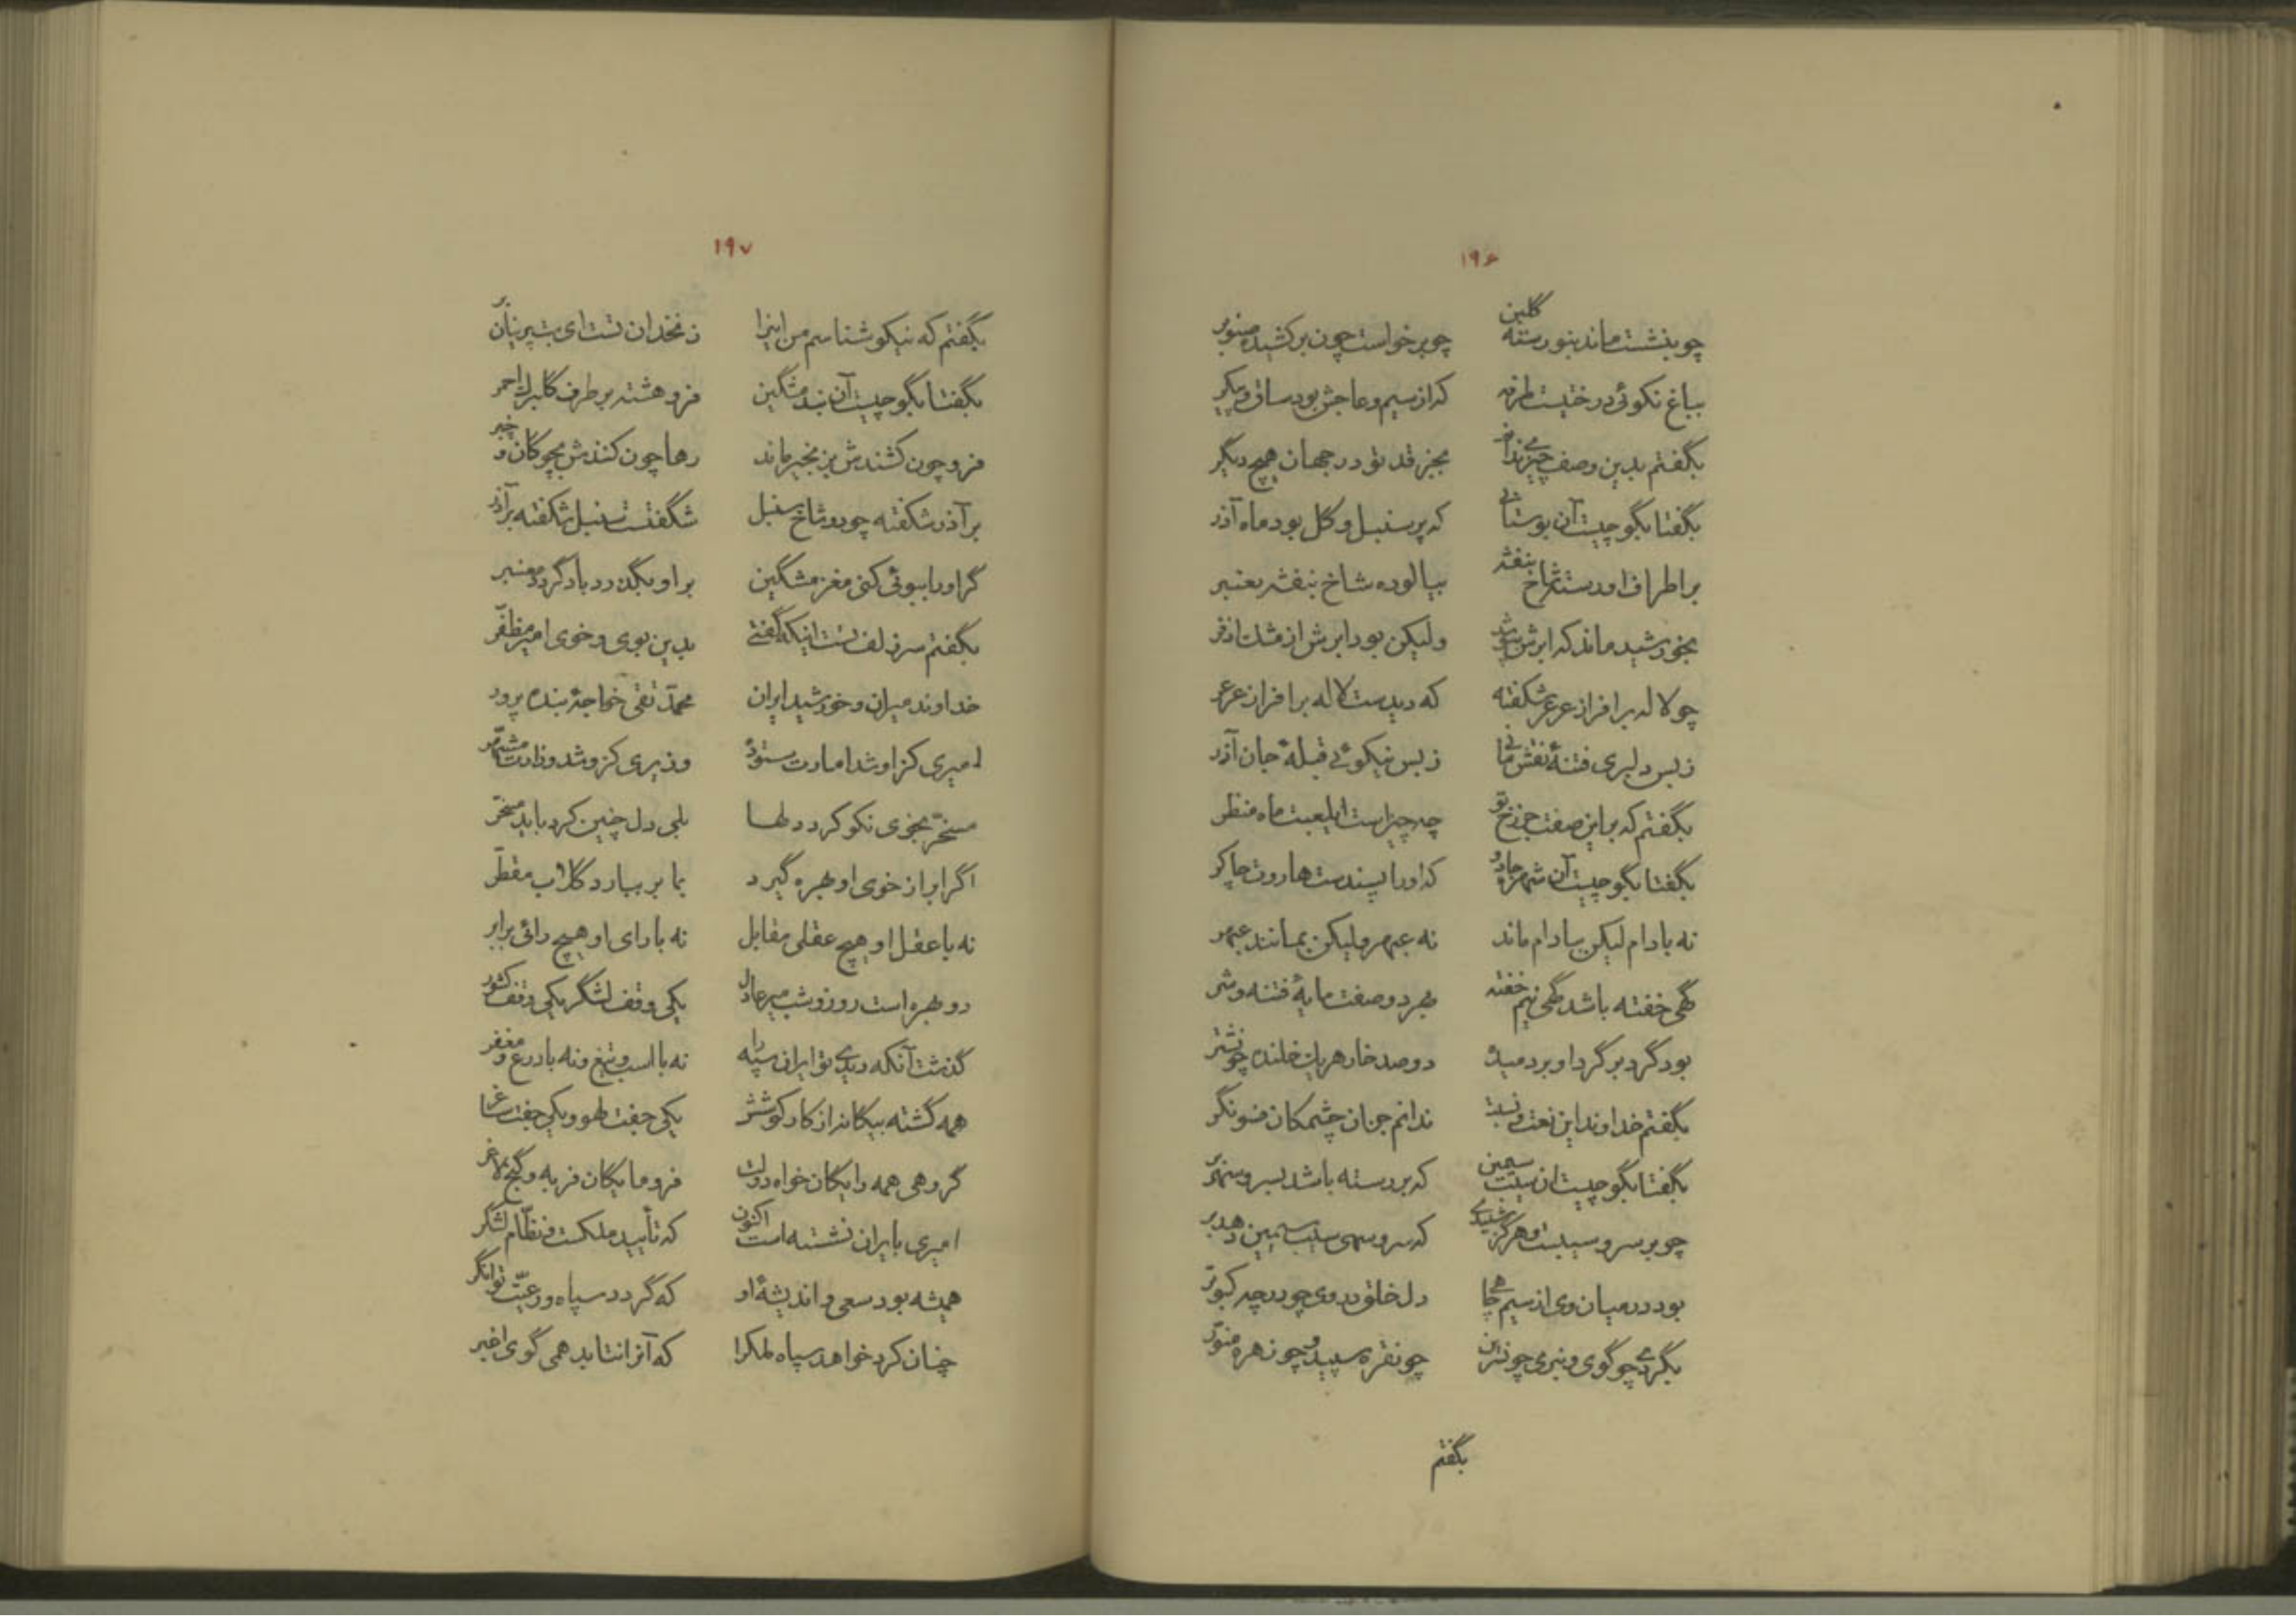 ۱۹۶
چو بنشست ماند بنورسته گلبن چو برخواست چون برکشیده صنوبر
بباغ نکوئی درختیست طرفه که از سیم و عاجش بود ساق و پیکر
بگفتم بدین وصف چیزی ندانم بجز قد تو در جهان هیچ دیگر
بگفتا بگو چیست آن بوستانی که پر سنبل و گل بود ماه آذر
بر اطراف او رسته شاخ بنفشه بیالوده شاخ بنفشه بعنبر
بخورشید ماند که ابرش بپوشد ولیکن بود ابرش از مشک اذفر
چو لاله بر افراز عرعر شکفته که دیدست لاله بر افراز عرعر
ز بس دلبری فتنهٔ نقش مانی ز بس نیکوئی قبلهٔ جان آذر
بگفتم که بر این صفت جز رخ تو چه چیز است ای لعبت ماه منظر
بگفتا بگو چیست آن شهره جادو که او را پسندست هاروت چاکر
نه بادام لیکن ببادام ماند نه عبهر ولیکن بمانند عبهر
گهی خفته باشد گهی نیم خفته بهر دو صفت مایهٔ فتنه و شر
بود گرد بر گرد او بر دمیده دو صد خار هر یک خلنده چو نشتر
بگفتم خداوند این نعت و نسبت ندانم جز آن چشمکان فسونگر
بگفتا بگو چیست آن سیب سیمین که بر رسته باشد بسرو سهی بر
چو بر سرو سیبست و هرگز شنیدی که سرو سهی سیب سیمین دهد بر
بود در میان وی از سیم چاهی دل خلق در وی چو در چه کبوتر
بگردی چو گوی و بنرمی چو نسرین چو نقره سپید و چو زهره منور
بگفتم
۱۹۷
بگفتم که نیکو شناسم من اینرا زنخدان تست ای بت پرنیان بر
بگفتا بگو چیست آن بند مشگین فرو هشته بر طرف گلبرگ احمر
فرو چون کشندش بزنجیر ماند رها چون کنندش بچوگان و چنبر
بر آذر شکفته چو دو شاخ سنبل شگفتست سنبل شکفته بر آذر
گر او را ببوئی کنی مغز مشگین بر او بگذرد باد گردد معنبر
بگفتم سر زلف تست اینکه گفتی بدین بوی و خوی امیر مظفر
خداوند میران و خورشید ایران محمد تقی خواجهٔ بنده پرور
امیری کز او شد امارت ستوده وزیری کزو شد وزارت مشهر
مسخر بخوی نکو کرد دلها بلی دل چنین کرد باید مسخر
اگر ابر از خوی او بهره گیرد بما بر ببارد گلاب مقطر
نه با عقل او هیچ عقلی مقابل نه با رای او هیچ رائی برابر
دو بهره است روز و شب میر عادل یکی وقف لشگر یکی وقف کشور
گذشت آنکه دیدی تو ایران سپه را نه با اسب و تیغ و نه با درع و مغفر
همه گشته بیگانه از کار کوشش یکی جفت لهو و یکی جفت ساغر
گروهی همه رایگان خواه دولت فرومایگان فربه و گنج لاغر
امیری بایران نشسته است اکنون که تأیید ملکست و نظام لشگر
همیشه بود سعی و اندیشهٔ او که گردد سپاه و رعیت توانگر
چنان کرد خواهد سپاه ملکرا که آنرا نتابد همی گوی اغبر